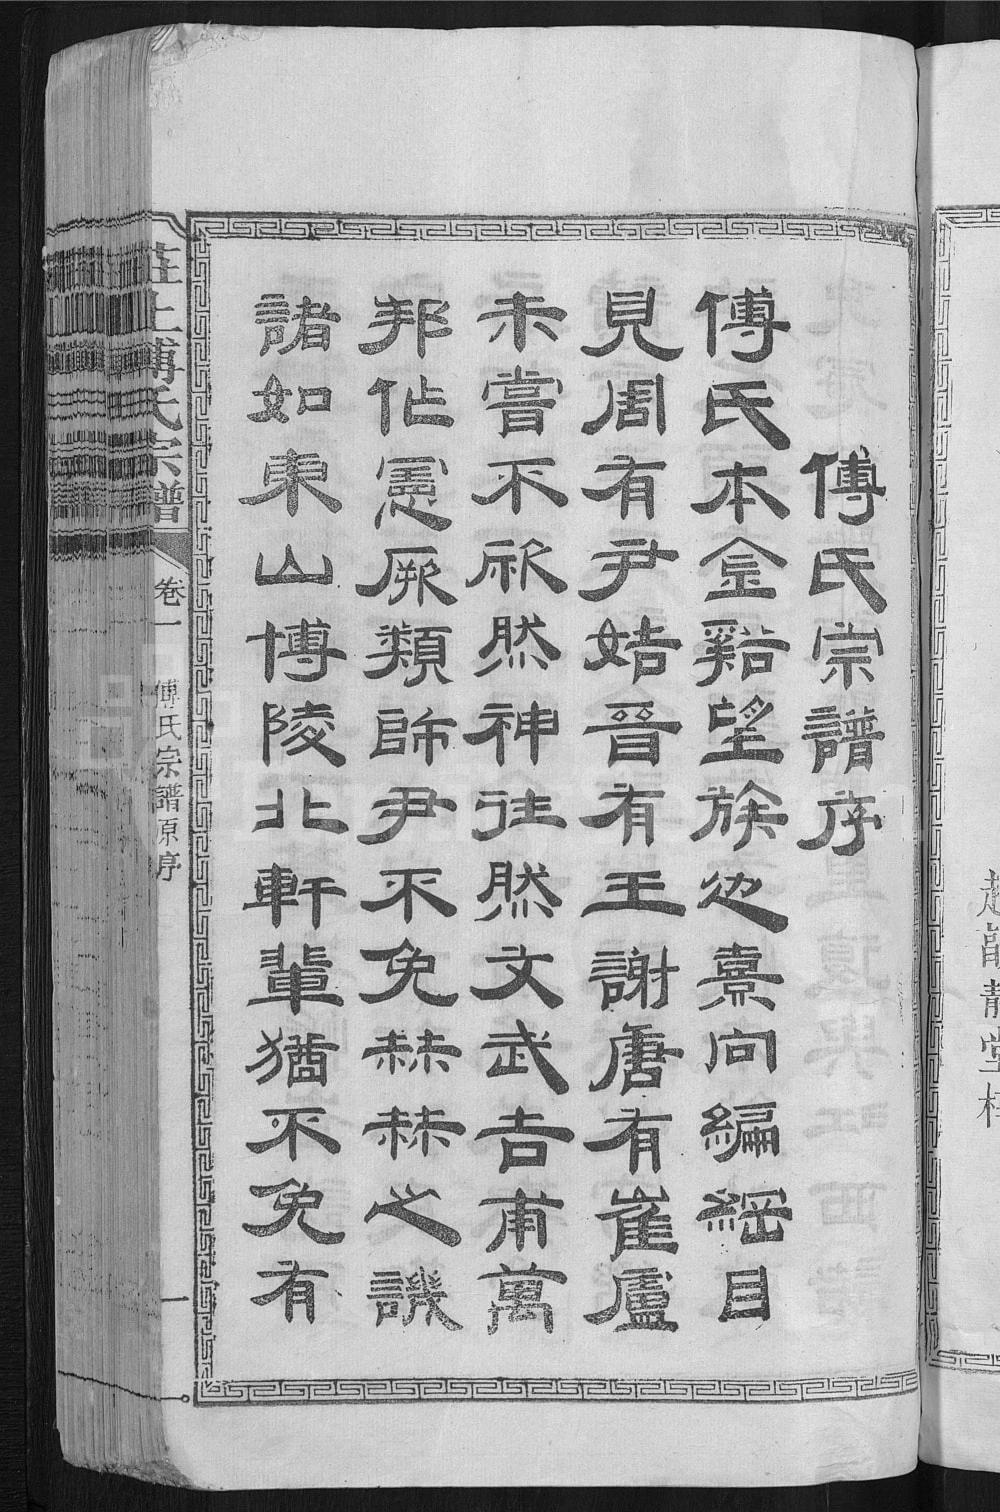 傅氏宗譜序
傅氏本金谿望族也熹向編綱目
見周有尹姞晉有王謝唐有崔盧
未嘗不祈然神往然文武吉甫萬
邦作憲厥類師尹不免赫赫之譏
諸如東山博陵北軒輩猶不免有
莊上傅氏宗譜
卷一
傅氏宗譜原序
一